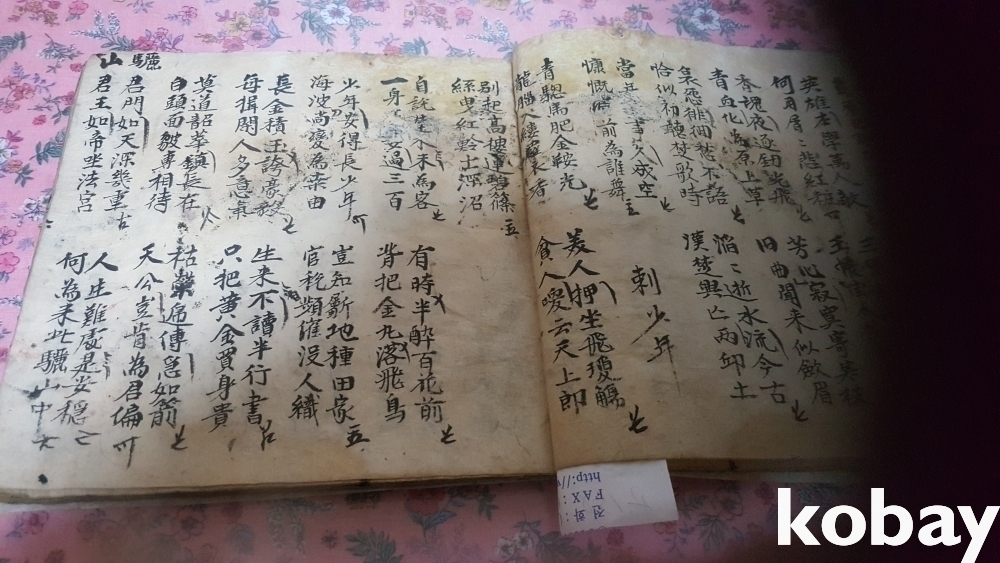 英雄本學萬人敵
何用屑〻悲紅粧
香魂夜逐釼光飛
青血化為原上草
芳心寂寞寄寒枝
旧曲聞來似歛眉
哀怨徘徊愁不語
恰似初聽楚歌時
滔〻逝水流今古
漢楚興亡兩邱土
當年事久成空
慷慨樽前為誰舞
刺少年
青驄馬肥金鞍光
龍腦入縷羅衫香
美人狎坐飛瓊觴
貧人喚云天上郎
別起高樓連碧篠
絲曳紅鱗出深沼
有時半醉百花前
背把金丸落飛鳥
自說生來未為客
一身美妾過三百
豈知斸地種田家
官稅頻催沒人織
長金積玉誇豪毅
每揖閑人多意氣
生來不讀半行書
只把黃金買身貴
少年安得長少年
海波尚變為桑田
枯榮遞傳急如箭
天公豈肯為君偏
莫道韶華鎭長在
白頭面皺專相待
驪山
君門如天深幾重
君王如帝坐法宮
人生難處是安穩
何為來此驪山中
전화:
FAX:
http://
kobay